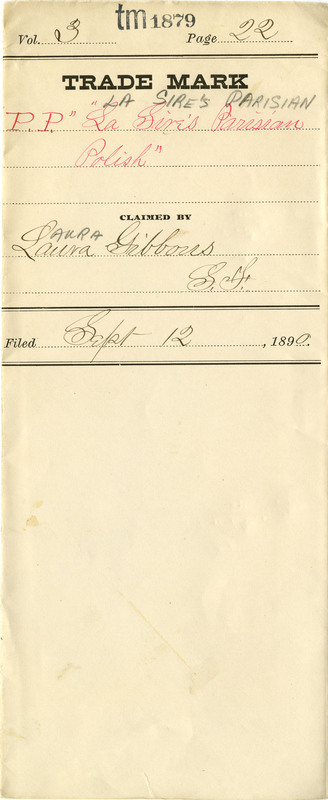 tm 1879
Vol. 3 Page 22
TRADE MARK
LA SIRE'S PARISIAN
P.P." "La Sire's Parisian
Polish"
CLAIMED BY
AURA
Laura Gibbons
S.F.
Filed Sept 12, 1890.